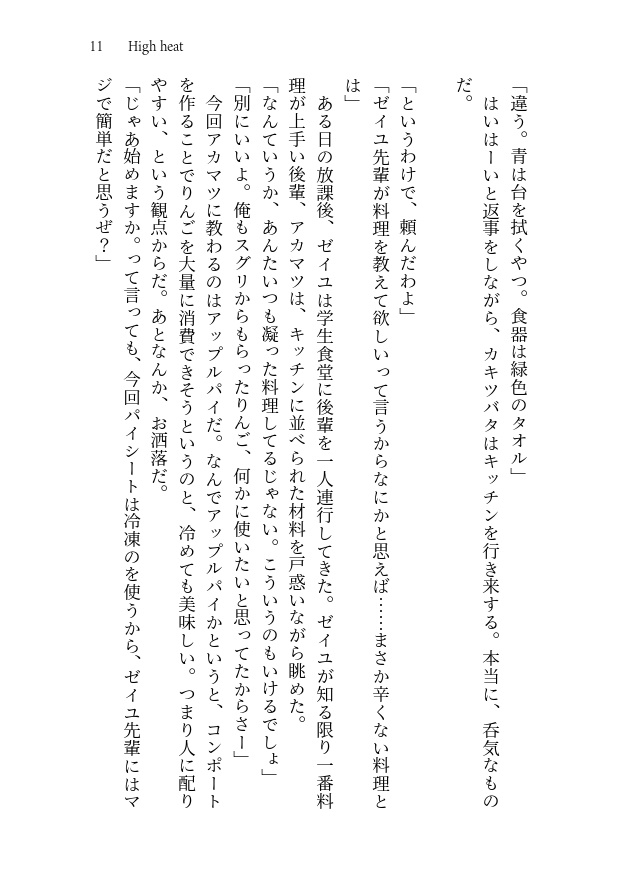 11 High heat
「違う。青は台を拭くやつ。食器は緑色のタオル」
はいはーいと返事をしながら、カキツバタはキッチンを行き来する。本当に、呑気なもの
だ。
「というわけで、頼んだわよ」
「ゼイユ先輩が料理を教えて欲しいって言うからなにかと思えば……まさか辛くない料理と
は」
ある日の放課後、ゼイユは学生食堂に後輩を一人連行してきた。ゼイユが知る限り一番料
理が上手い後輩、アカマツは、キッチンに並べられた材料を戸惑いながら眺めた。
「なんていうか、あんたいつも凝った料理してるじゃない。こういうのもいけるでしょ」
「別にいいよ。俺もスグリからもらったりんご、何かに使いたいと思ってたからさー」
今回アカマツに教わるのはアップルパイだ。なんでアップルパイかというと、コンポート
を作ることでりんごを大量に消費できそうというのと、冷めても美味しい。つまり人に配り
やすい、という観点からだ。あとなんか、お洒落だ。
「じゃあ始めますか。って言っても、今回パイシートは冷凍のを使うから、ゼイユ先輩にはマ
ジで簡単だと思うぜ？」